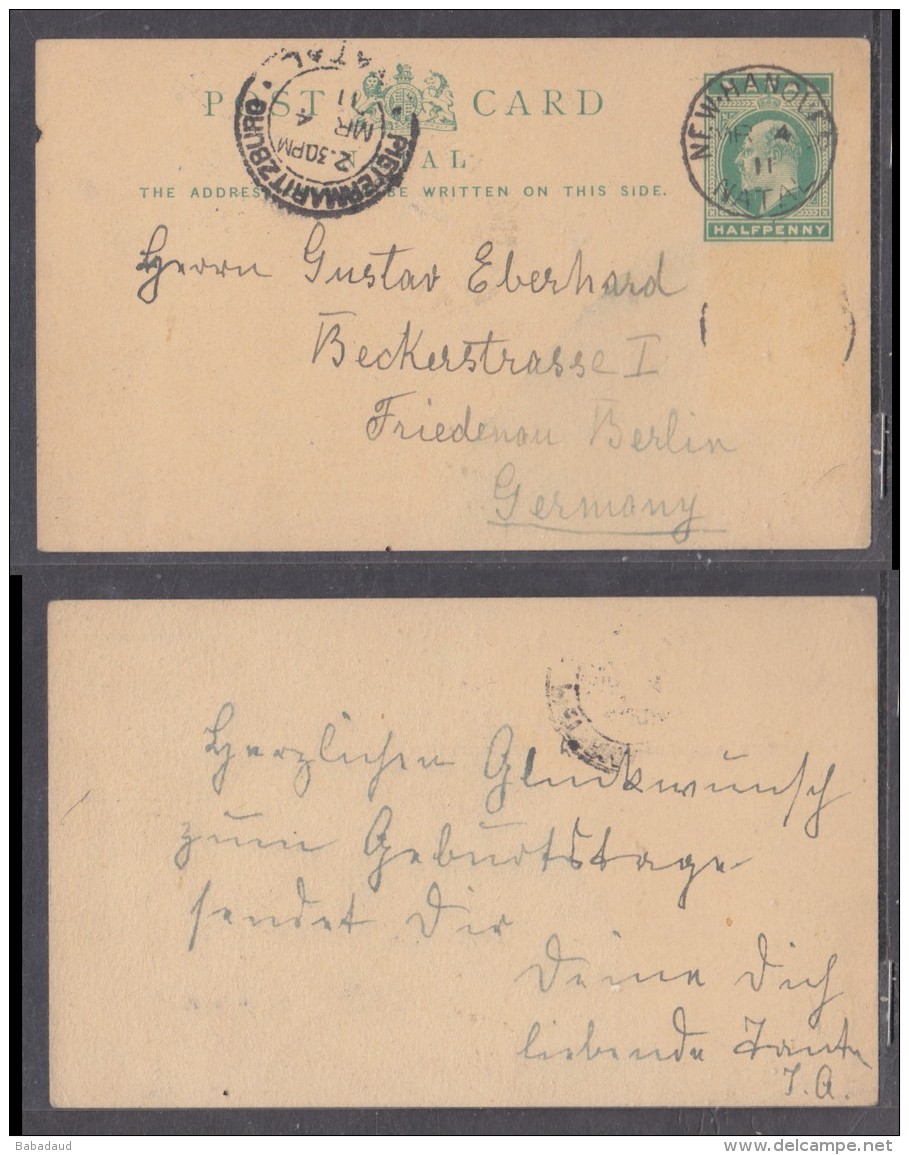 POST CARD
NATAL
THE ADDRESS BE WRITTEN ON THIS SIDE.
PIETERMARITZBURG NATAL
2.30 PM
MR 4
11
NEW-HANOVE
MR 4
11
NATAL
HALFPENNY
Herrn Gustav Eberhard
Beckerstrasse I
Friedenau Berlin
Germany
Herzlichen Glückwunsch
zum Geburtstage
sendet Dir
Deine Dich
liebende Tante
J. A.
Babadaud
www.delcampe.net